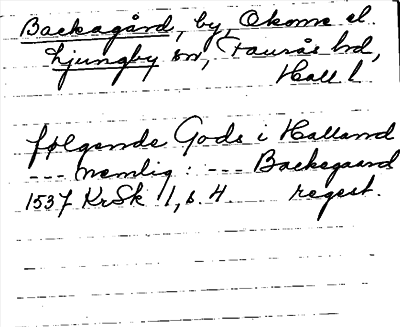 Backagård, by, Okome el.
Ljungby sn, Faurås hd,
Hall l.
følgende Gods i Halland
--- nemlig: --- Backegaard
1537 KrSk 1, s. 4 regest.